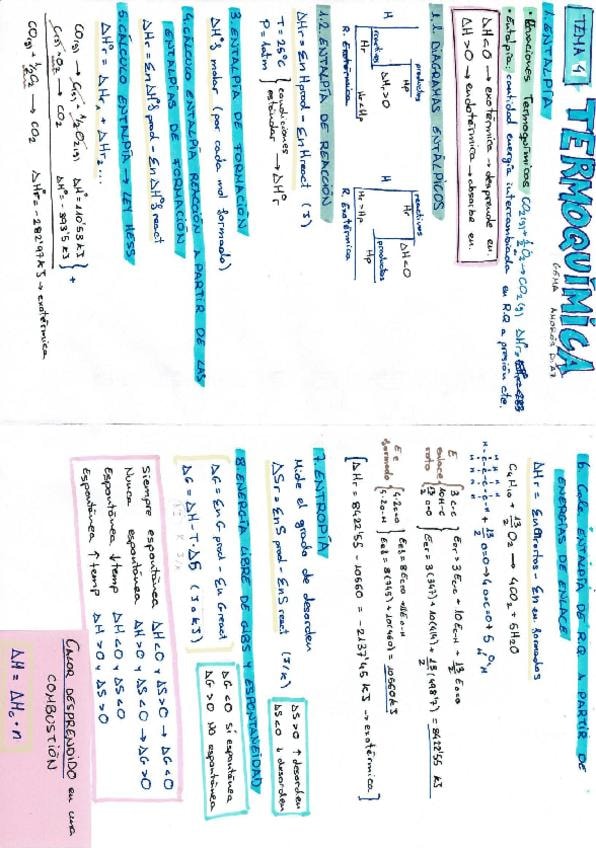 TEMA 4 TERMOQUÍMICA
GEMA ANDRÉS DÍAZ
1. ENTALPÍA
• Ecuaciones Termoquímicas CO₂(g) + ½O₂ → CO₂(g) ΔH°r =
• Entalpía: cantidad energía intercambiada en R.Q a presión cte.
ΔH<0 → exotérmica → desprende en.
ΔH>0 → endotérmica → absorbe en.
1.1. DIAGRAMAS ENTÁLPICOS
H
reactivos
Hr
productos
Hp
ΔH>0
Hr<Hp
R. Endotérmica
H
reactivos
Hr
ΔH<0
productos
Hp
Hr>Hp
R. Exotérmica
1.2. ENTALPÍA DE REACCIÓN
ΔHr = Σn Hprod - Σn Hreact (J)
T = 25°C
P = 1atm
condiciones estándar → ΔH°r
3. ENTALPÍA DE FORMACIÓN
ΔH°f molar (por cada mol formado)
4. CÁLCULO ENTALPÍA REACCIÓN A PARTIR DE LAS
ENTALPÍAS DE FORMACIÓN
ΔHr = Σn ΔH°f prod - Σn ΔH°f react
5. CÁLCULO ENTALPÍA → LEY HESS
ΔH°r = ΔHr₁ + ΔHr₂ ...
CO(g) → C(s) + ½O₂(g) ΔH° = 110'53 kJ
C(s) + O₂ → CO₂ ΔH° = -393'5 kJ
+
CO(g) + ½O₂ → CO₂ ΔH°r = -282'97 kJ → exotérmica
6. Calc. ENTALPÍA DE R.Q A PARTIR DE
ENERGÍAS DE ENLACE
ΔHr = Σn En rotos - Σn en. formados
C₄H₁₀ + 13/2 O₂ → 4CO₂ + 5H₂O
H H H H
H-C-C-C-C-H + 13/2 O=O → 4 O=C=O + 5 H O H
H H H H
E enlace roto
3 C-C
10 H-C
13/2 O=O
Eer = 3 Ec-c + 10 Ec-H + 13/2 Eo=o
Eer = 3(347) + 10(414) + 13/2 (498'7) = 8422'55 kJ
E e formado
4·2 C=O
5·2 O-H
Eef = 8 Ec=o + 10 Eo-H
Eef = 8(745) + 10(460) = 10560 kJ
ΔHr = 8422'55 - 10560 = -2137'45 kJ → exotérmica
7. ENTROPÍA
Mide el grado de desorden
ΔSr = Σn S prod - Σn S react (J/K)
ΔS>0 ↑ desorden
ΔS<0 ↓ desorden
8. ENERGÍA LIBRE DE GIBBS Y ESPONTANEIDAD
ΔG = Σn G prod - Σn G react
ΔG = ΔH - T·ΔS (J o kJ)
ΔG<0 Sí espontánea
ΔG>0 NO espontánea
Siempre espontánea ΔH<0 y ΔS>0 → ΔG<0
Nunca espontánea ΔH>0 y ΔS<0 → ΔG>0
Espontánea ↓ temp ΔH<0 y ΔS<0
Espontánea ↑ temp ΔH>0 y ΔS>0
CALOR DESPRENDIDO en una
COMBUSTIÓN
ΔH = ΔHc · n